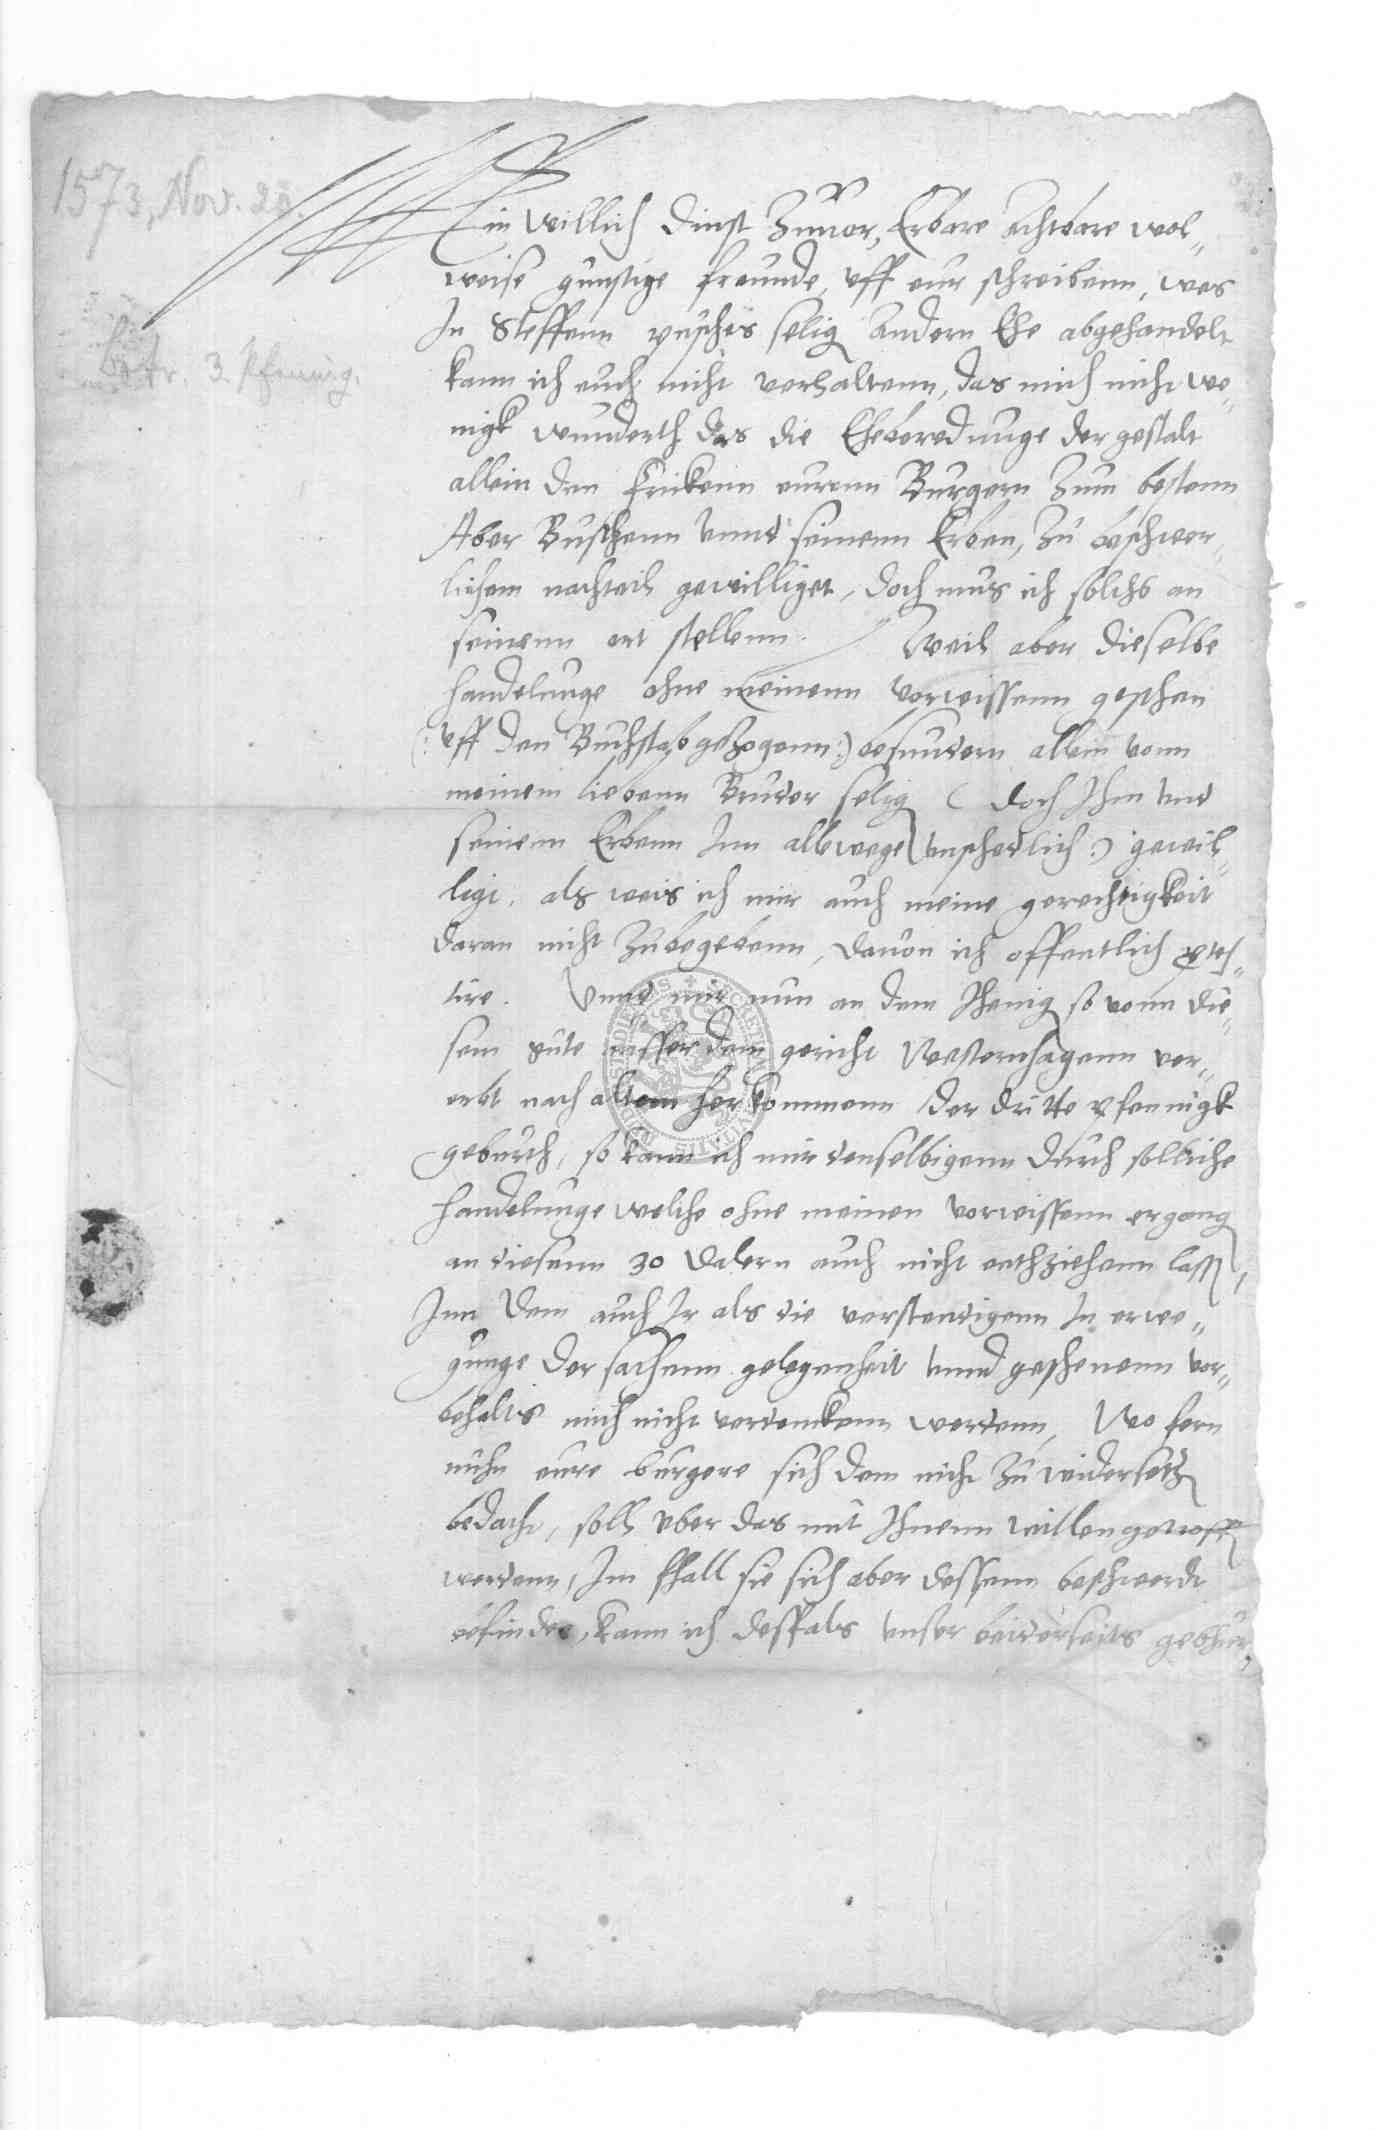 1573, Nov. 25.
Betr. 3. Pfennig.
Mein willich dinst zuuor, Erbare achtbare wol„
weise gunstige freunde, vff eur schreibenn, was
In Steffenn selig andern Ehe abgehandelt
kann ich euch nicht verhaltenn, das mich nicht we„
nigk wunderth das die Eheberedunge der gestalt
allein den Fricken eurenn Burgern zum bestenn
Aber Buschenn vnnd seinenn Erben, zu beschwer„
lichem nachteil gewilliget, doch mus ich solchs an
seinenn ort stellenn. Weil aber dieselbe
handelunge ohne meinenn vorwissenn geschen
(: vff den Buchstab gezogenn :) besundern allein vonn
meinem liebenn Bruder selig (doch Ihm vnd
seinem Erbenn Inn allewege vnschedlich :) gewil„
ligt. als weis ich mir auch meine gerechtigkeit
daran nicht zubegebenn, dauon ich offentlich protes„
tire. Vnnd mir nun an dem Ihenig so vonn die„
sem gute ausser dem gericht Westernhagenn ver„
erbt nach altem herkommenn der dritte pfennigk
geburth, so kann ich mir denselbigenn durch solliche
handelunge welche ohne meinen vorwissenn ergang
an diesenn 30 dalern auch nicht enthziehenn lassen,
Inn dem auch Ir als die verstendigenn In erwe„
gunge der sachenn gelegenheit vnnd geschenenn vor„
behalts mich nicht verdenckenn werdenn, Wo fern
nuhn eure burgere sich dem nicht zu widersetzen
bedacht, soll vber das mit Ihnenn willen getroffen
werdenn, Im fhall sie sich aber dessenn beschwerdt
befinden, kann ich desfals vnser beiderseits gebhur„